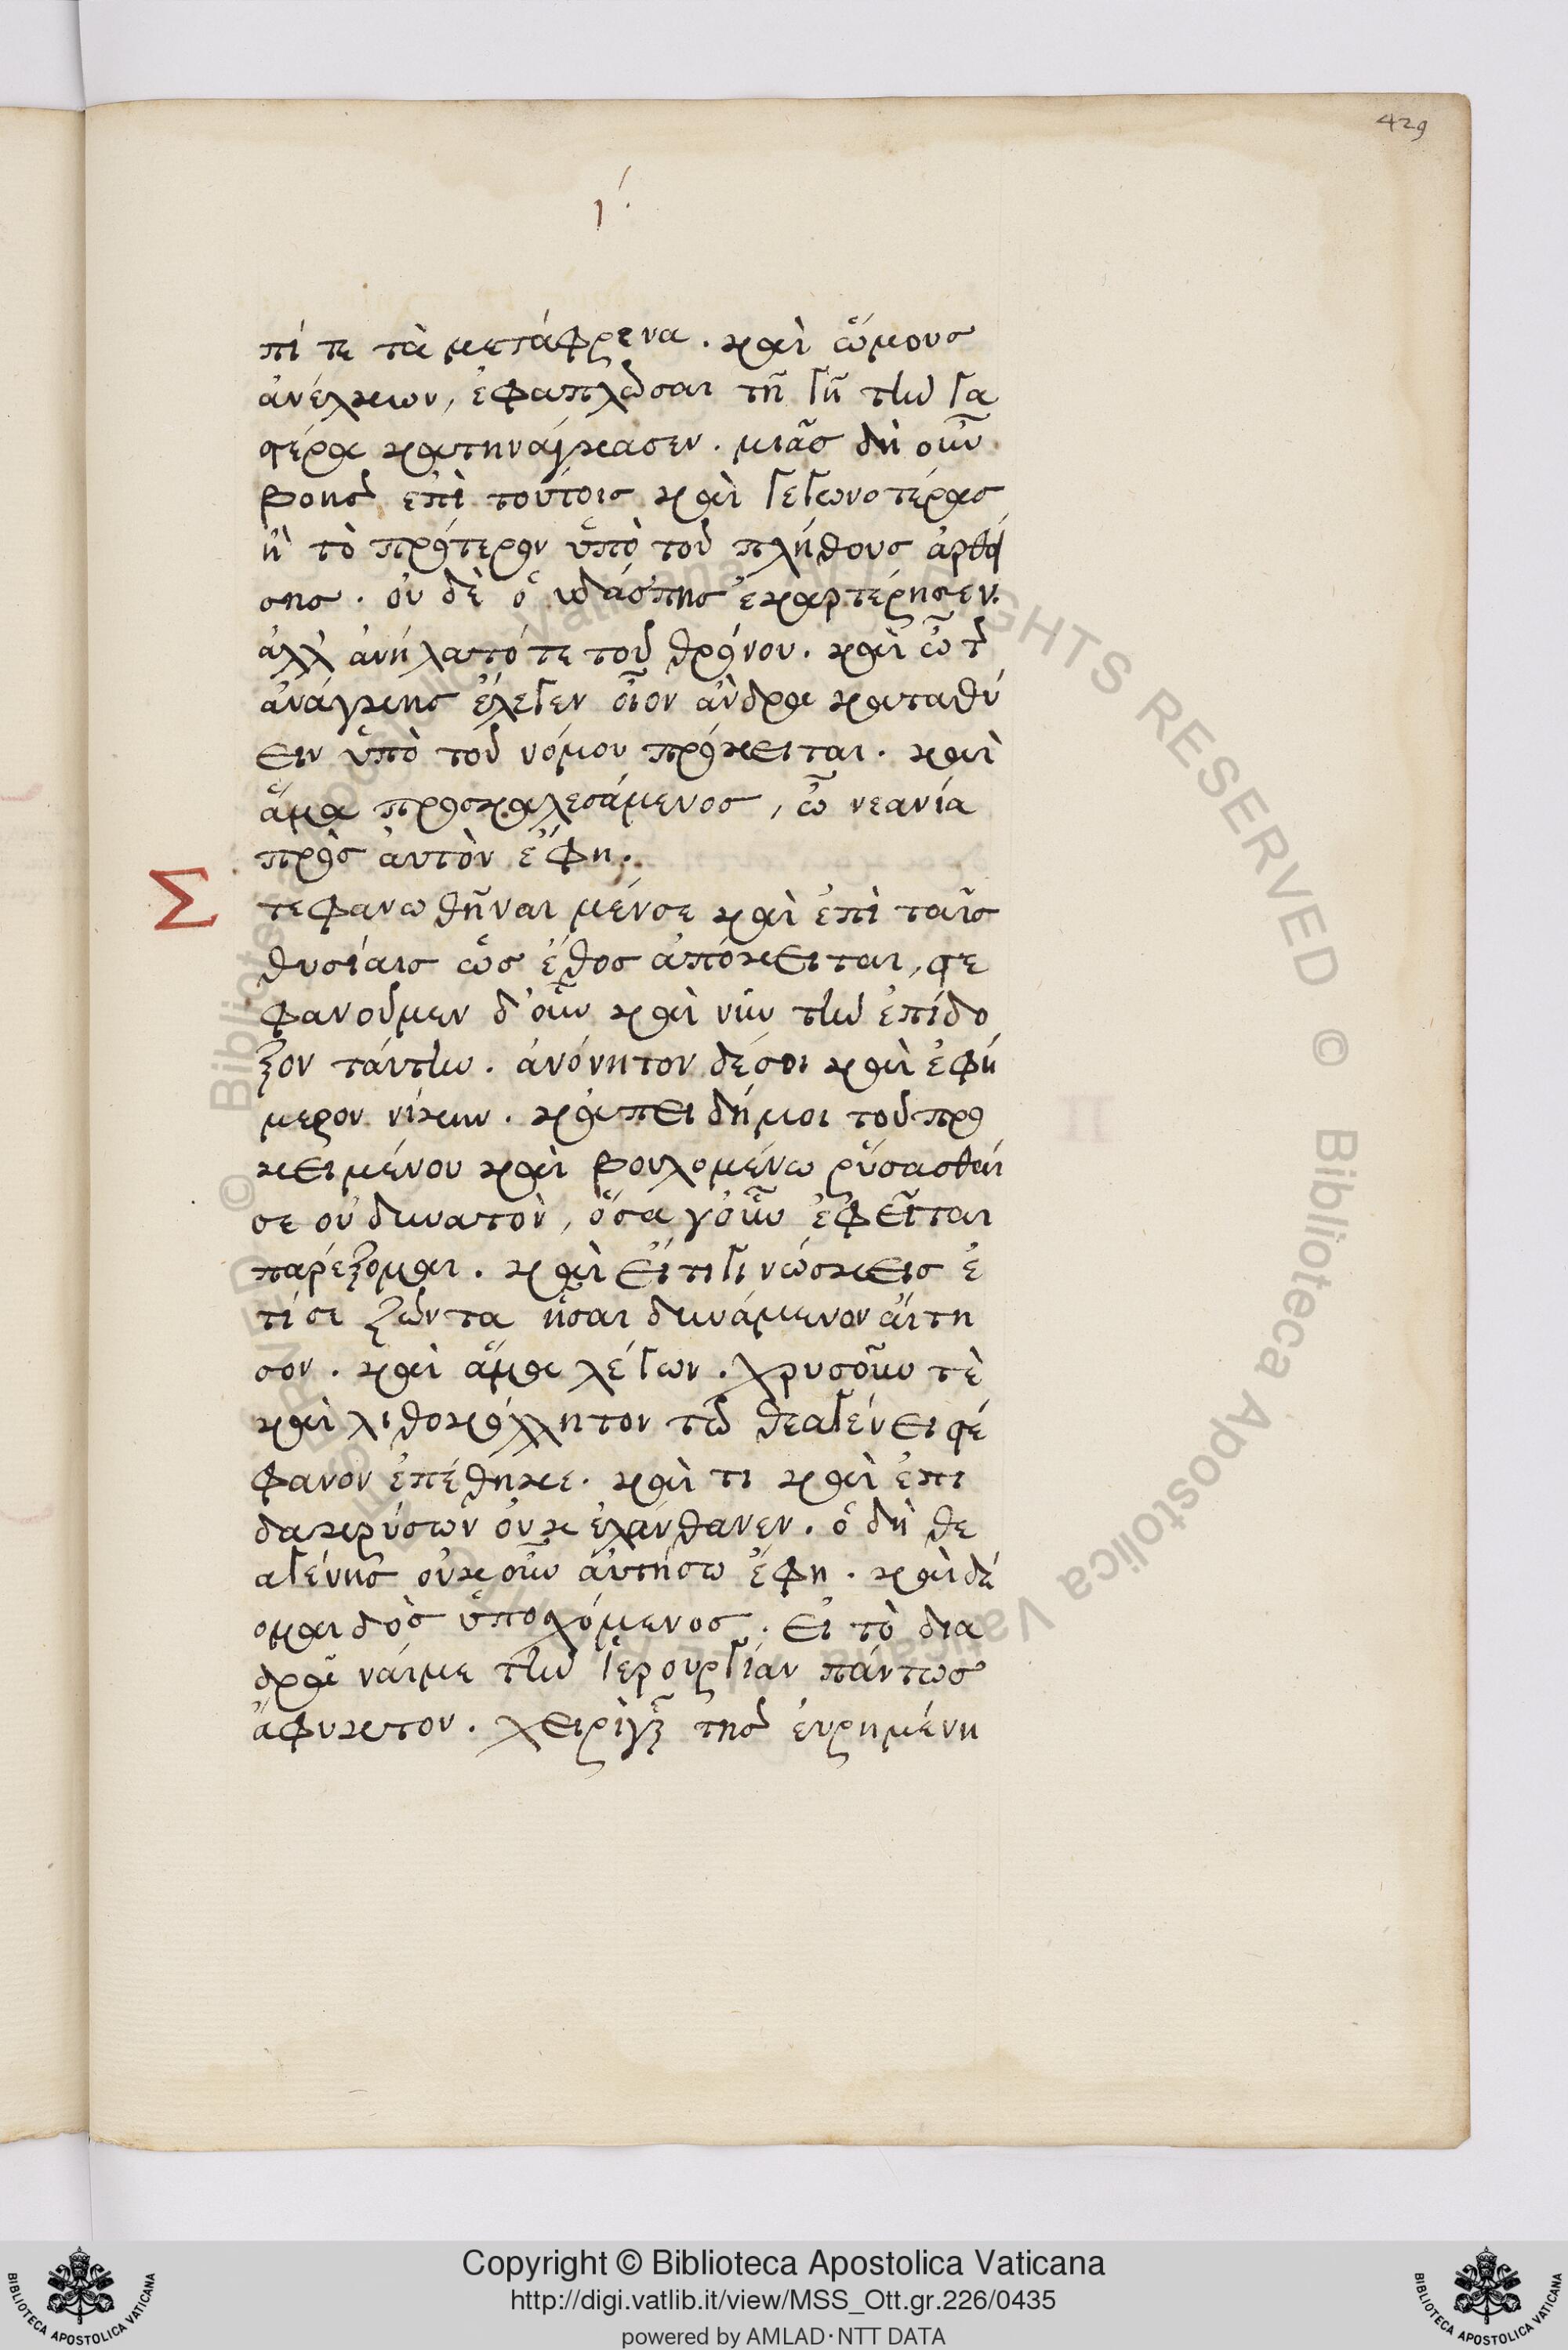 429
ι΄
πί τε τὰ μετάφρενα. καὶ ὤμους
ἀνέλκων, ἐφαπλῶσαι τῇ γῇ τὴν γα
στέρα κατηνάγκασεν. μιᾶς δὴ οὖν
βοῆς ἐπὶ τούτοις καὶ γεγωνοτέρας
ἢ τὸ πρότερον ὑπὸ τοῦ πλήθους ἀρθεί
σης. οὐδὲ ὁ ὑδάσπης ἐκαρτέρησεν.
ἀλλ' ἀνήλατό τε τοῦ θρόνου. καὶ ὢ τῆς
ἀνάγκης ἔλεγεν οἷον ἄνδρα καταθύ
ειν ὑπὸ τοῦ νόμου πρόκειται. καὶ
ἅμα προσκαλεσάμενος, ὦ νεανία
πρὸς αὐτὸν ἔφη.
Στεφανωθῆναι μέν σε καὶ ἐπὶ ταῖς
θυσίαις ὡς ἔθος ἀπόκειται, στε
φανοῦμεν δ' οὖν καὶ νῦν τὴν ἐπίδο
ξον ταύτην. ἀνόνητον δέ σοι καὶ ἐφή
μερον νίκην. κἀπειδή μοι τοῦ προ
κειμένου καὶ βουλομένω ῥύσασθαί
σε οὐ δυνατὸν, ὅσα γοῦν ἐφεῖται
παρέξομαι. καὶ εἴ τι γινώσκεις ἔ
τί σε ζῶντα ἧσαι δυνάμενον αἴτη
σον. καὶ ἅμα λέγων. χρυσοῦν τὲ
καὶ λιθοκόλλητον τῶ θεαγένει στέ
φανον ἐπέθηκε. καί τι καὶ ἐπι
δακρύσων οὐκ ἐλάνθανεν. ὁ δὴ θε
αγένης οὐκοῦν αἰτήσω ἔφη. καὶ δέ
ομαι δὸς ὑποσχόμενος. εἰ τὸ δια
δρᾶναί με τὴν ἱερουργίαν πάντως
ἄφυκτον. χειρὶ γοῦν τῆς εὑρημένη
Copyright © Biblioteca Apostolica Vaticana
http://digi.vatlib.it/view/MSS_Ott.gr.226/0435
powered by AMLAD·NTT DATA